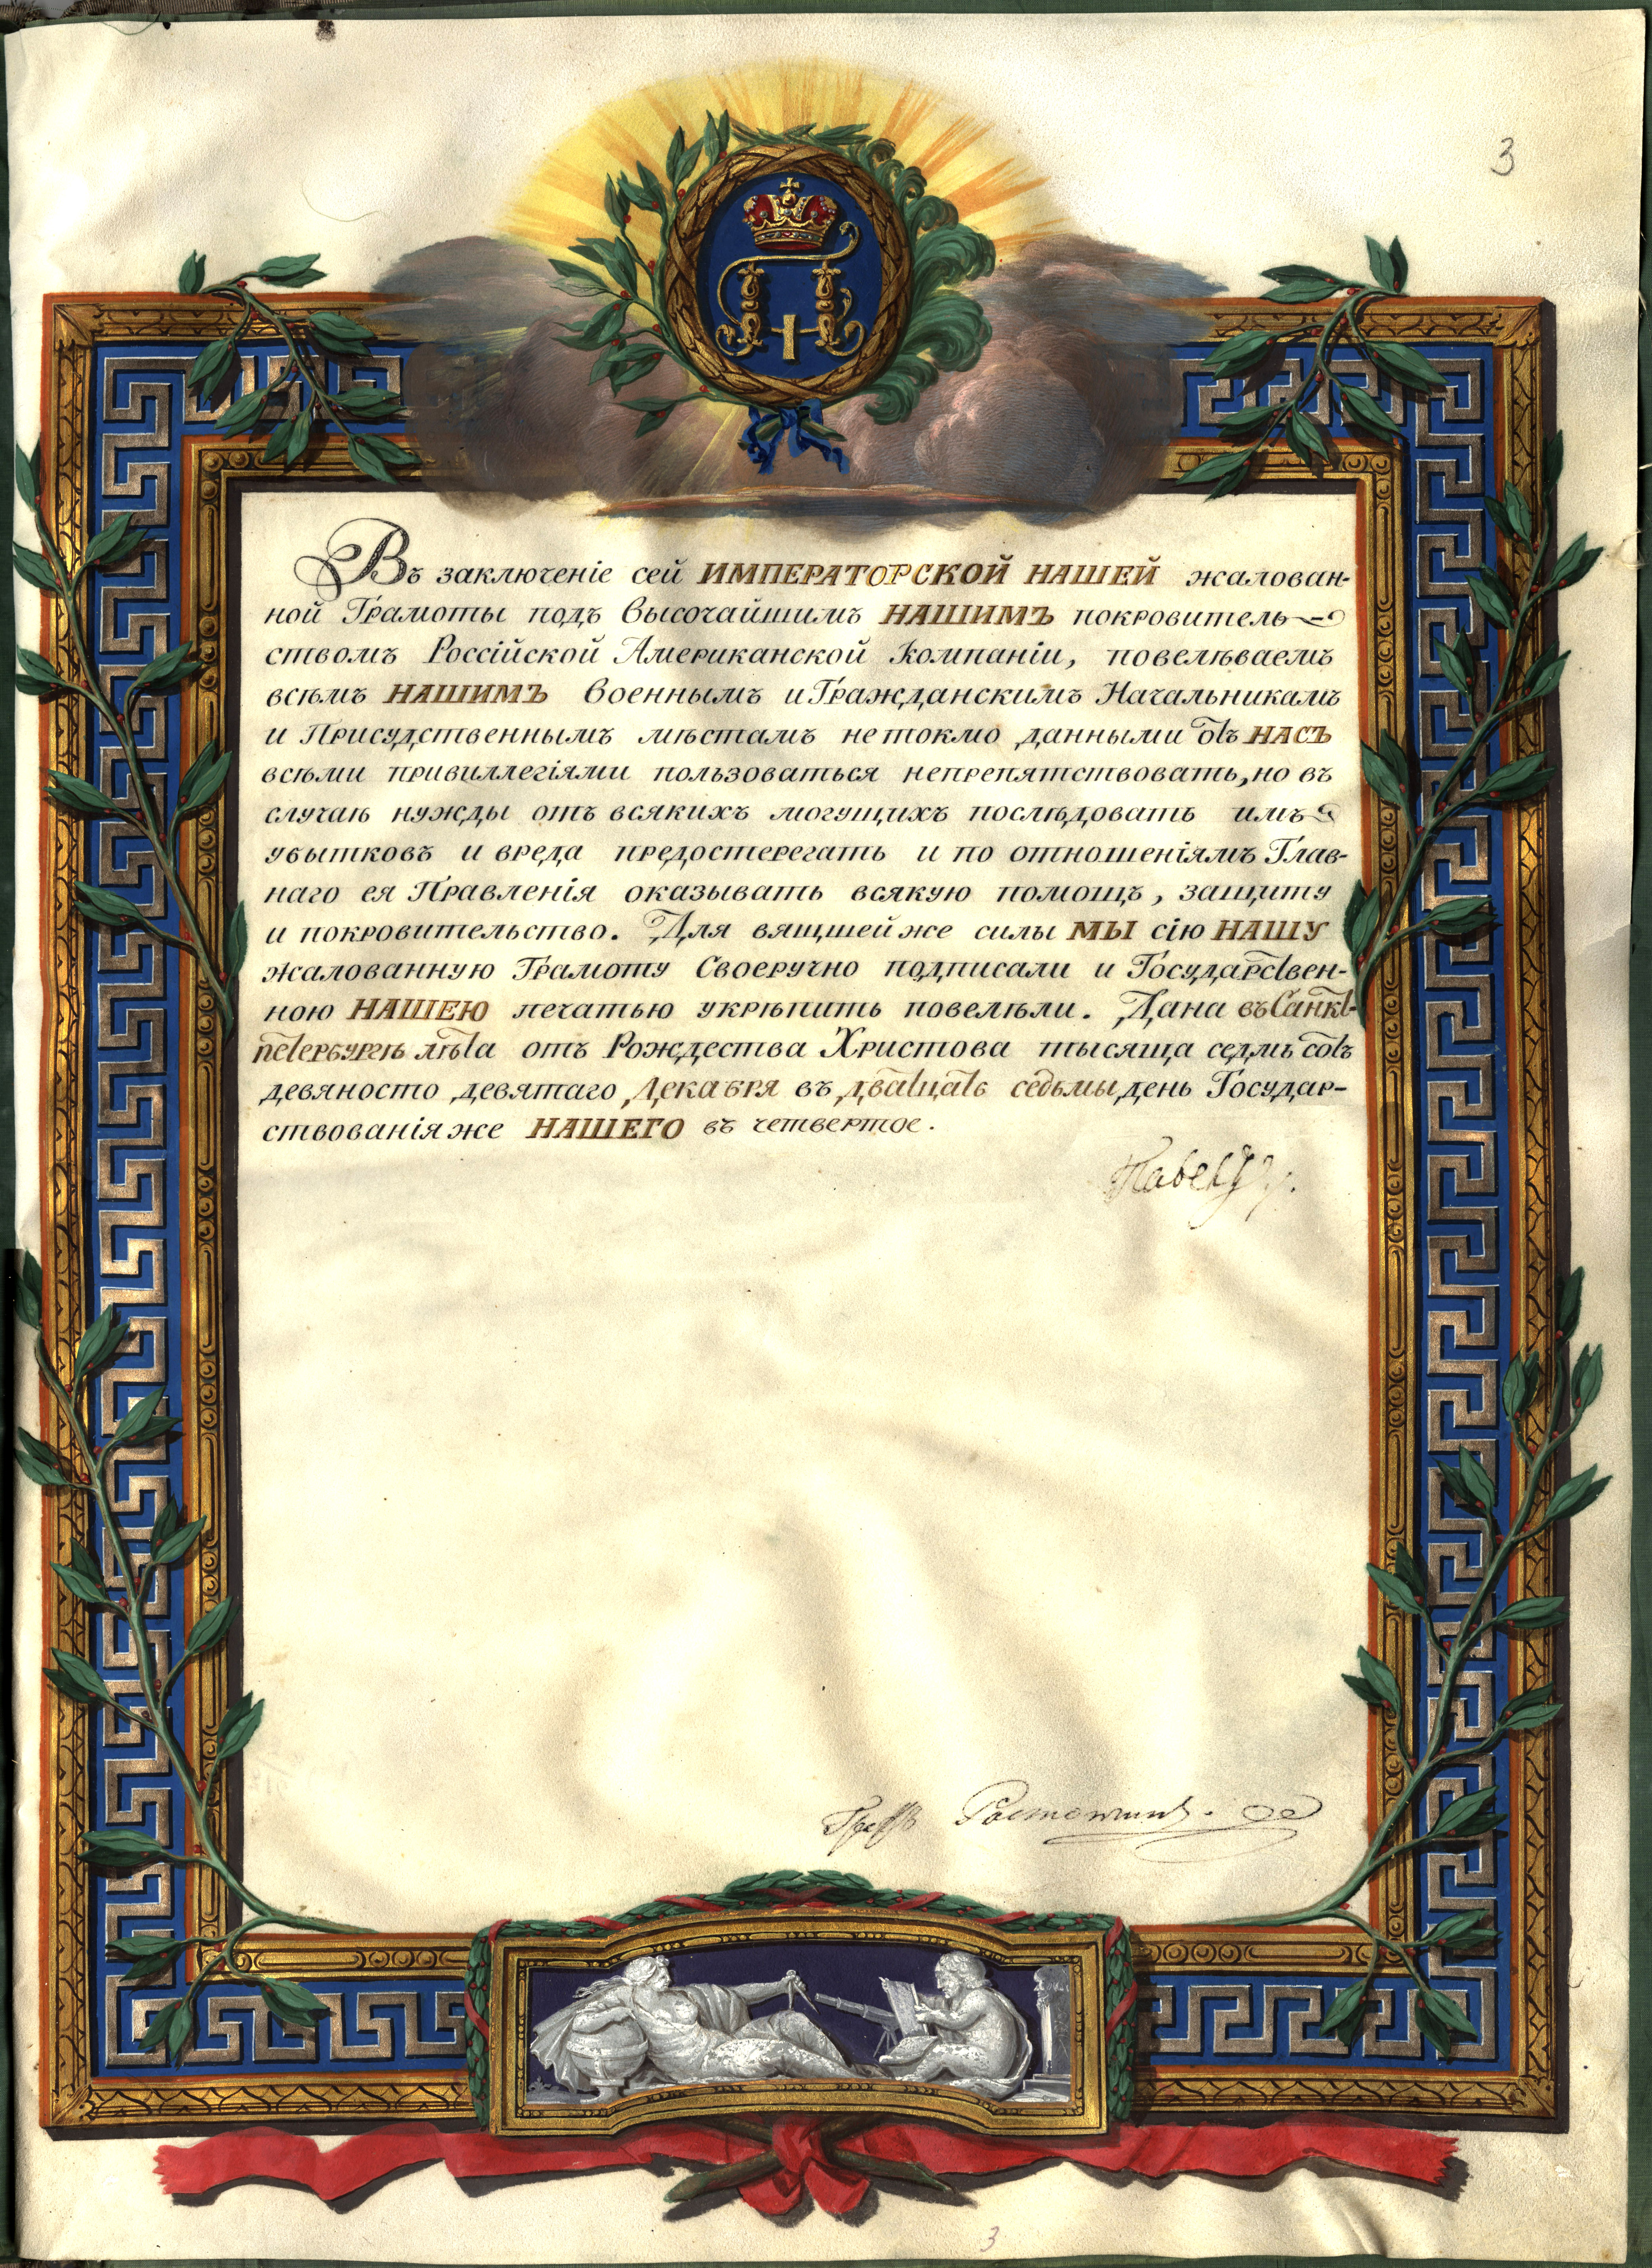 3
Въ заключеніе сей ИМПЕРАТОРСКОЙ НАШЕЙ жалован-
ной Грамоты подъ Высочайшимъ НАШИМЪ покровитель-
ствомъ Россійской Американской Компаніи, повелѣваемъ
всѣмъ НАШИМЪ Военнымъ и Гражданскимъ Начальникамъ
и Присудственнымъ мѣстамъ не токмо данными отъ НАСЪ
всѣми привиллегіями пользоваться непрепятствовать, но въ
случаѣ нужды отъ всякихъ могущихъ послѣдовать имъ
убытковъ и вреда предостерегать и по отношеніямъ Глав-
наго ея Правленія оказывать всякую помощъ, защиту
и покровительство. Для вящшей же силы МЫ сію НАШУ
жалованную Грамоту Своеручно подписали и Государствен-
ною НАШЕЮ печатью укрѣпить повелѣли. Дана въ Санкт-
петербургѣ лѣта отъ Рождества Христова тысяща седмь сотъ
девяность девятаго Декабря въ дватцать седьмый день Государ-
ствованія же НАШЕГО въ четвертое.
Павелъ
Графъ Растопчинъ.
3